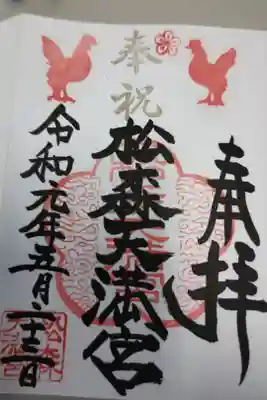 奉拝
奉祝
松森天満宮
令和元年五月二十二日